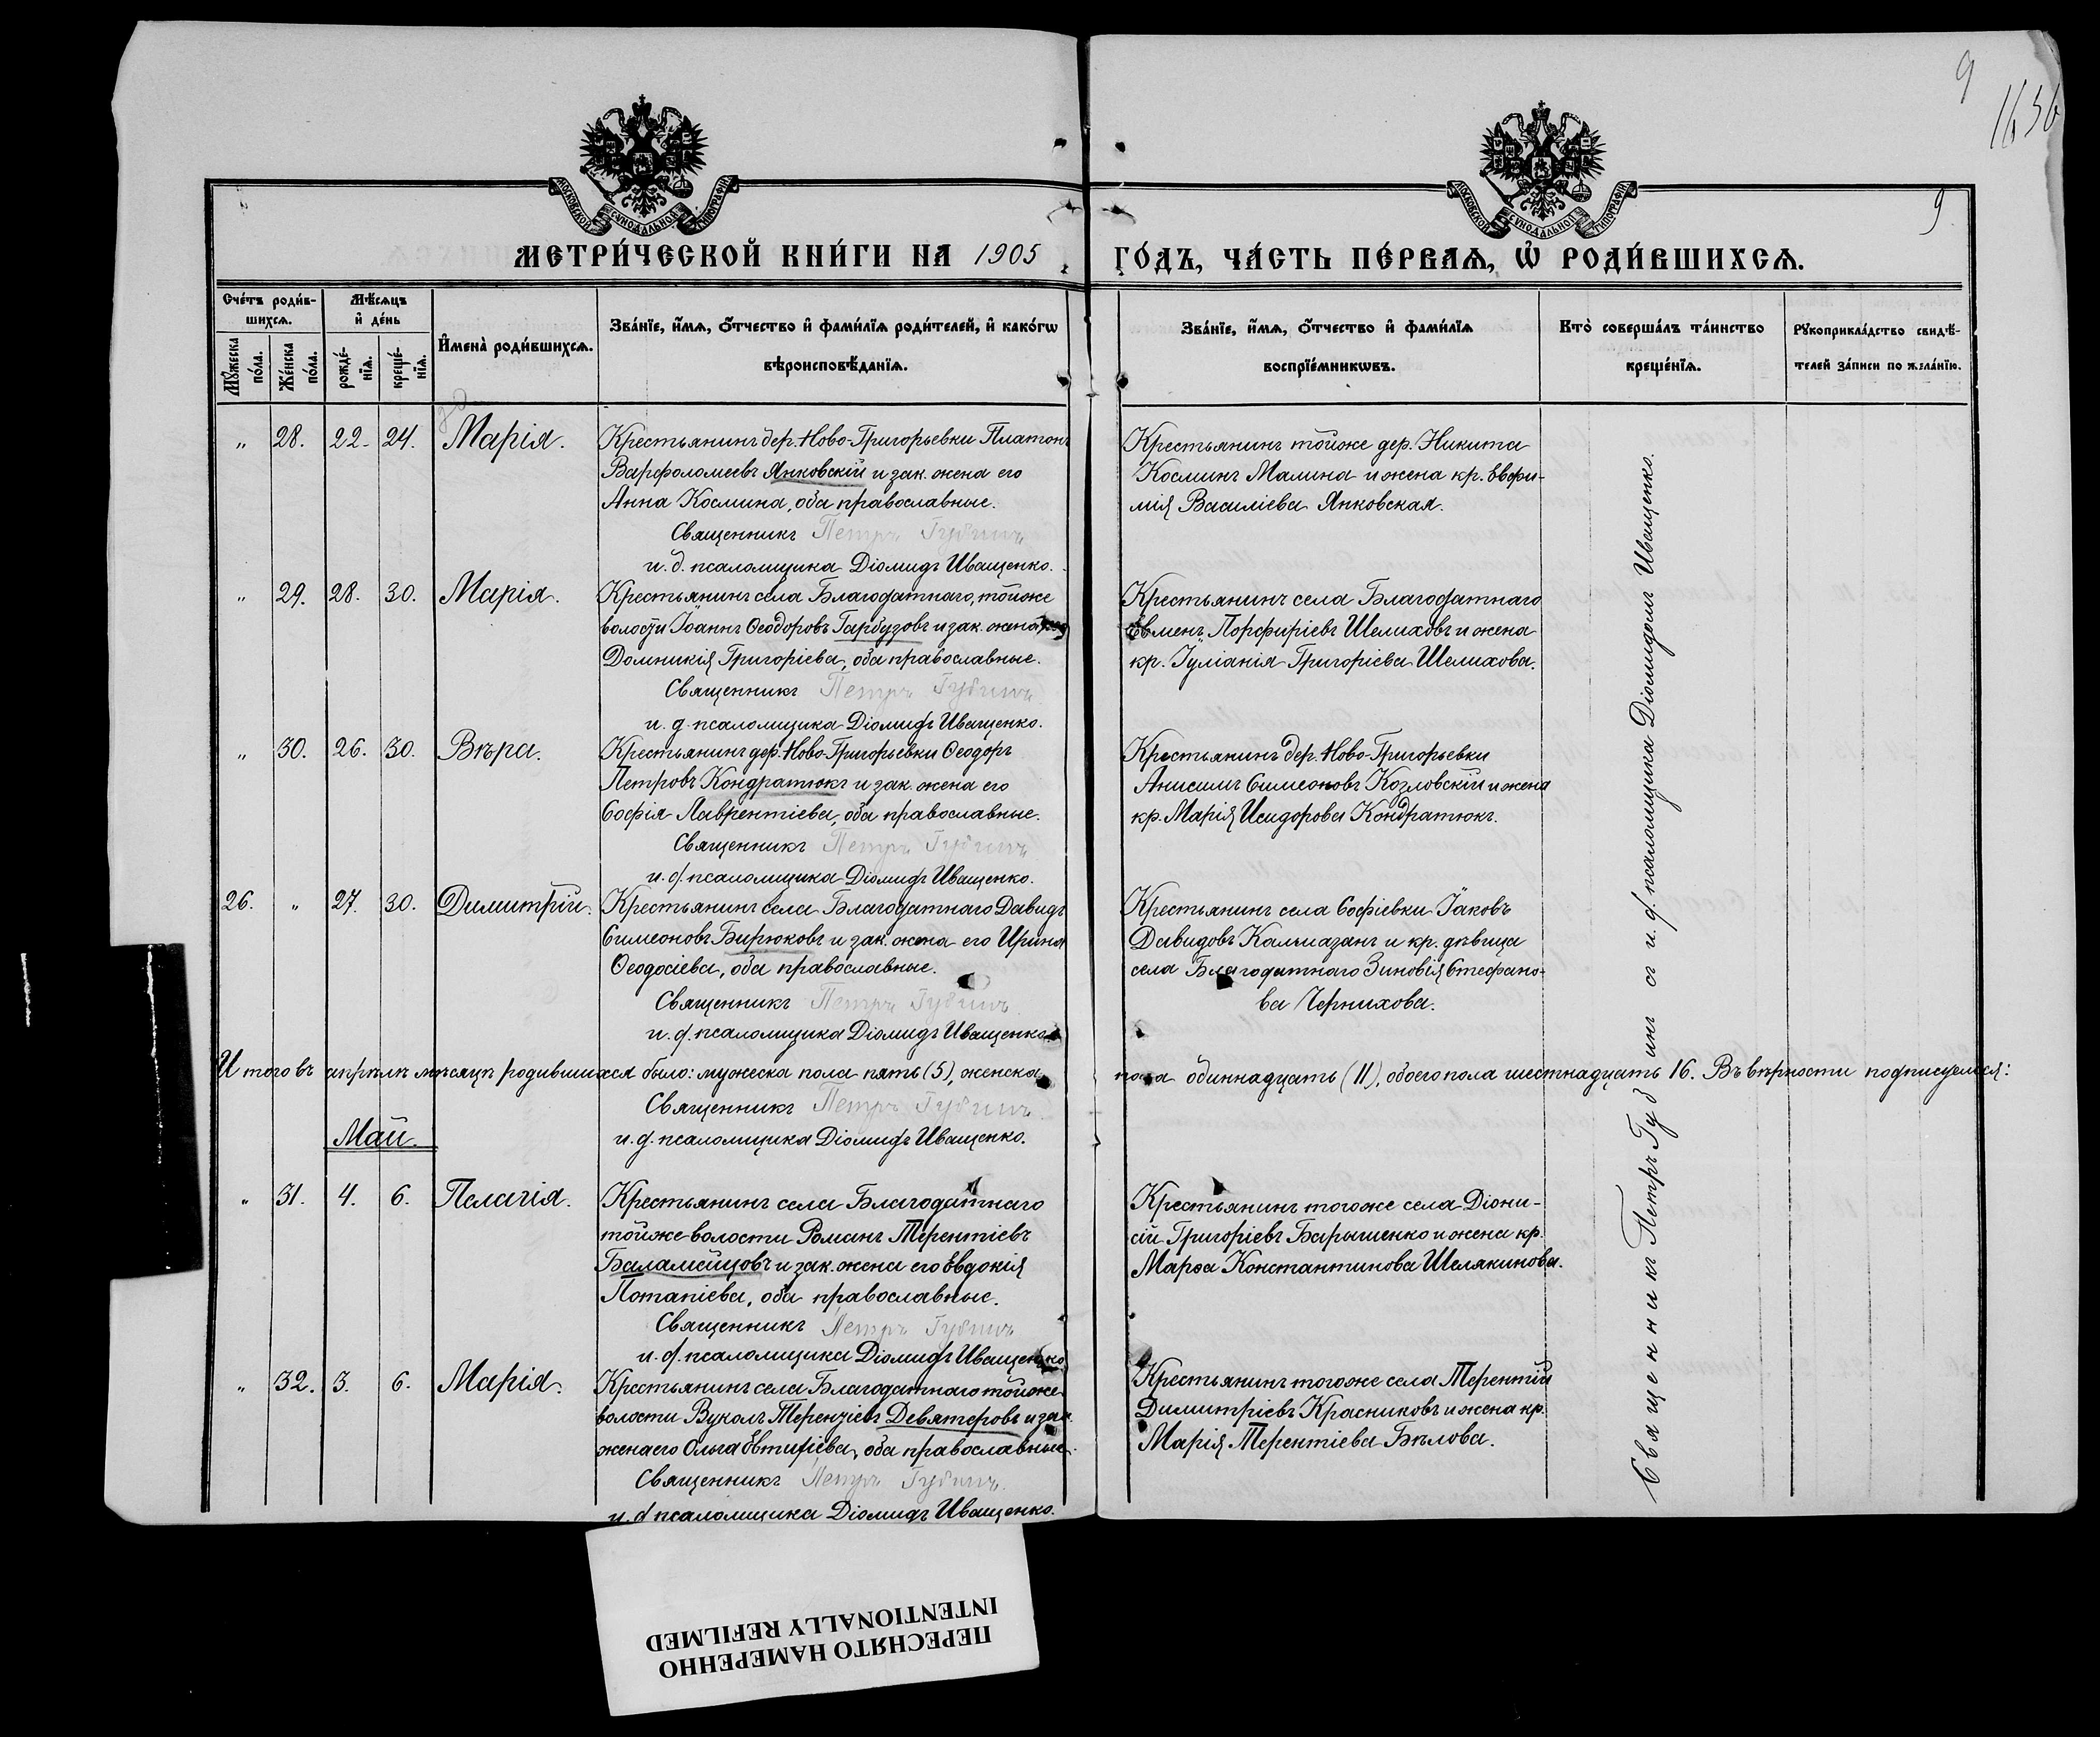 9
1636
9
МОСКОВСКОЙ СѴНОДАЛЬНОЙ ТИПОГРАФІИ
МОСКОВСКОЙ СѴНОДАЛЬНОЙ ТИПОГРАФІИ
МЕТРИ́ЧЕСКОЙ КНИ́ГИ НА 1905 ГО́ДЪ, ЧА́СТЬ ПЕ́РВАѦ, Ѡ҆ РОДИ́ВШИХСѦ.
Сче́тъ роди́в-
шихсѧ.
Мѣ́сѧцъ
и҆ де́нь
И҆мена̀ роди́вшихсѧ.
Зва́нїе, и҆́мѧ, ѻ҆́тчество и҆ фами́лїѧ роди́телей, и҆ како́гѡ
вѣроисповѣ́данїѧ.
Зва́нїе, и҆́мѧ, ѻ҆́тчество и҆ фами́лїѧ
воспрїе́мникѡвъ.
Кто̀ соверша́лъ та́инство
креще́нїѧ.
Рꙋкоприкла́дство свидѣ́-
телей за́писи по жела́нїю.
Мꙋ́жеска
по́ла.
Же́нска
по́ла.
рожде́-
нїѧ.
креще́-
нїѧ.
„ 28. 22. 24. Марія. Крестьянинъ дер. Ново-Григорьевки Платонъ
Варфоломеевъ Янковскій и зак. жена его
Анна Космина, оба православные.
Священникъ Петръ Губинъ
и. д. псаломщика Діомидъ Иващенко.
Крестьянинъ тойже дер. Никита
Косминъ Малина и жена кр. Евфи-
мія Василіева Янковская.
„ 29. 28. 30. Марія. Крестьянинъ села Благодатнаго, тойже
волости Іоаннъ Ѳеодоровъ Гарбузовъ и зак. жена его
Домникія Григоріева, оба православные.
Священникъ Петръ Губинъ
и. д. псаломщика Діомидъ Иващенко.
Крестьянинъ села Благодатнаго
Евменъ Порфиріевъ Шелиховъ и жена
кр. Іуліанія Григоріева Шелихова.
„ 30. 26. 30. Вѣра. Крестьянинъ дер. Ново-Григорьевки Ѳеодоръ
Петровъ Кондратюкъ и зак. жена его
Софія Лаврентіева, оба православные.
Священникъ Петръ Губинъ
и. д. псаломщика Діомидъ Иващенко.
Крестьянинъ дер. Ново-Григорьевки
Анисимъ Симеоновъ Козловскій и жена
кр. Марія Исидорова Кондратюкъ.
26. „ 27. 30. Димитрій. Крестьянинъ села Благодатнаго Давидъ
Симеоновъ Бирюковъ и зак. жена его Ирина
Ѳеодосіева, оба православные.
Священникъ Петръ Губинъ
и. д. псаломщика Діомидъ Иващенко.
Крестьянинъ села Софіевки Іаковъ
Давидовъ Калмазанъ и кр. дѣвица
села Благодатнаго Зиновія Стефано-
ва Черникова.
Итого въ апрѣлѣ мѣсяцѣ родившихся было: мужеска пола пять (5), женска пола одиннадцать (11), обоего пола шестнадцать 16. Въ вѣрности подписуемся:
Священникъ Петръ Губинъ
и. д. псаломщика Діомидъ Иващенко.
Май.
„ 31. 4. 6. Пелагія. Крестьянинъ села Благодатнаго
тойже волости Романъ Терентіевъ
Баламейцовъ и зак. жена его Евдокія
Потапіева, оба православные.
Священникъ Петръ Губинъ
и. д. псаломщика Діомидъ Иващенко.
Крестьянинъ тогоже села Діони-
сій Григоріевъ Барышенко и жена кр.
Марѳа Константинова Шелякинова.
„ 32. 3. 6. Марія. Крестьянинъ села Благодатнаго тойже
волости Вуколъ Терентіевъ Девятеровъ и зак.
жена его Ольга Евтихіева, оба православные.
Священникъ Петръ Губинъ
и. д. псаломщика Діомидъ Иващенко.
Крестьянинъ тогоже села Терентій
Димитріевъ Красниковъ и жена кр.
Марія Терентіева Бѣлова.
Священникъ Петръ Губинъ съ и. д. псаломщика Діомидомъ Иващенко.
ПЕРЕСНЯТО НАМЕРЕННО
INTENTIONALLY REFILMED